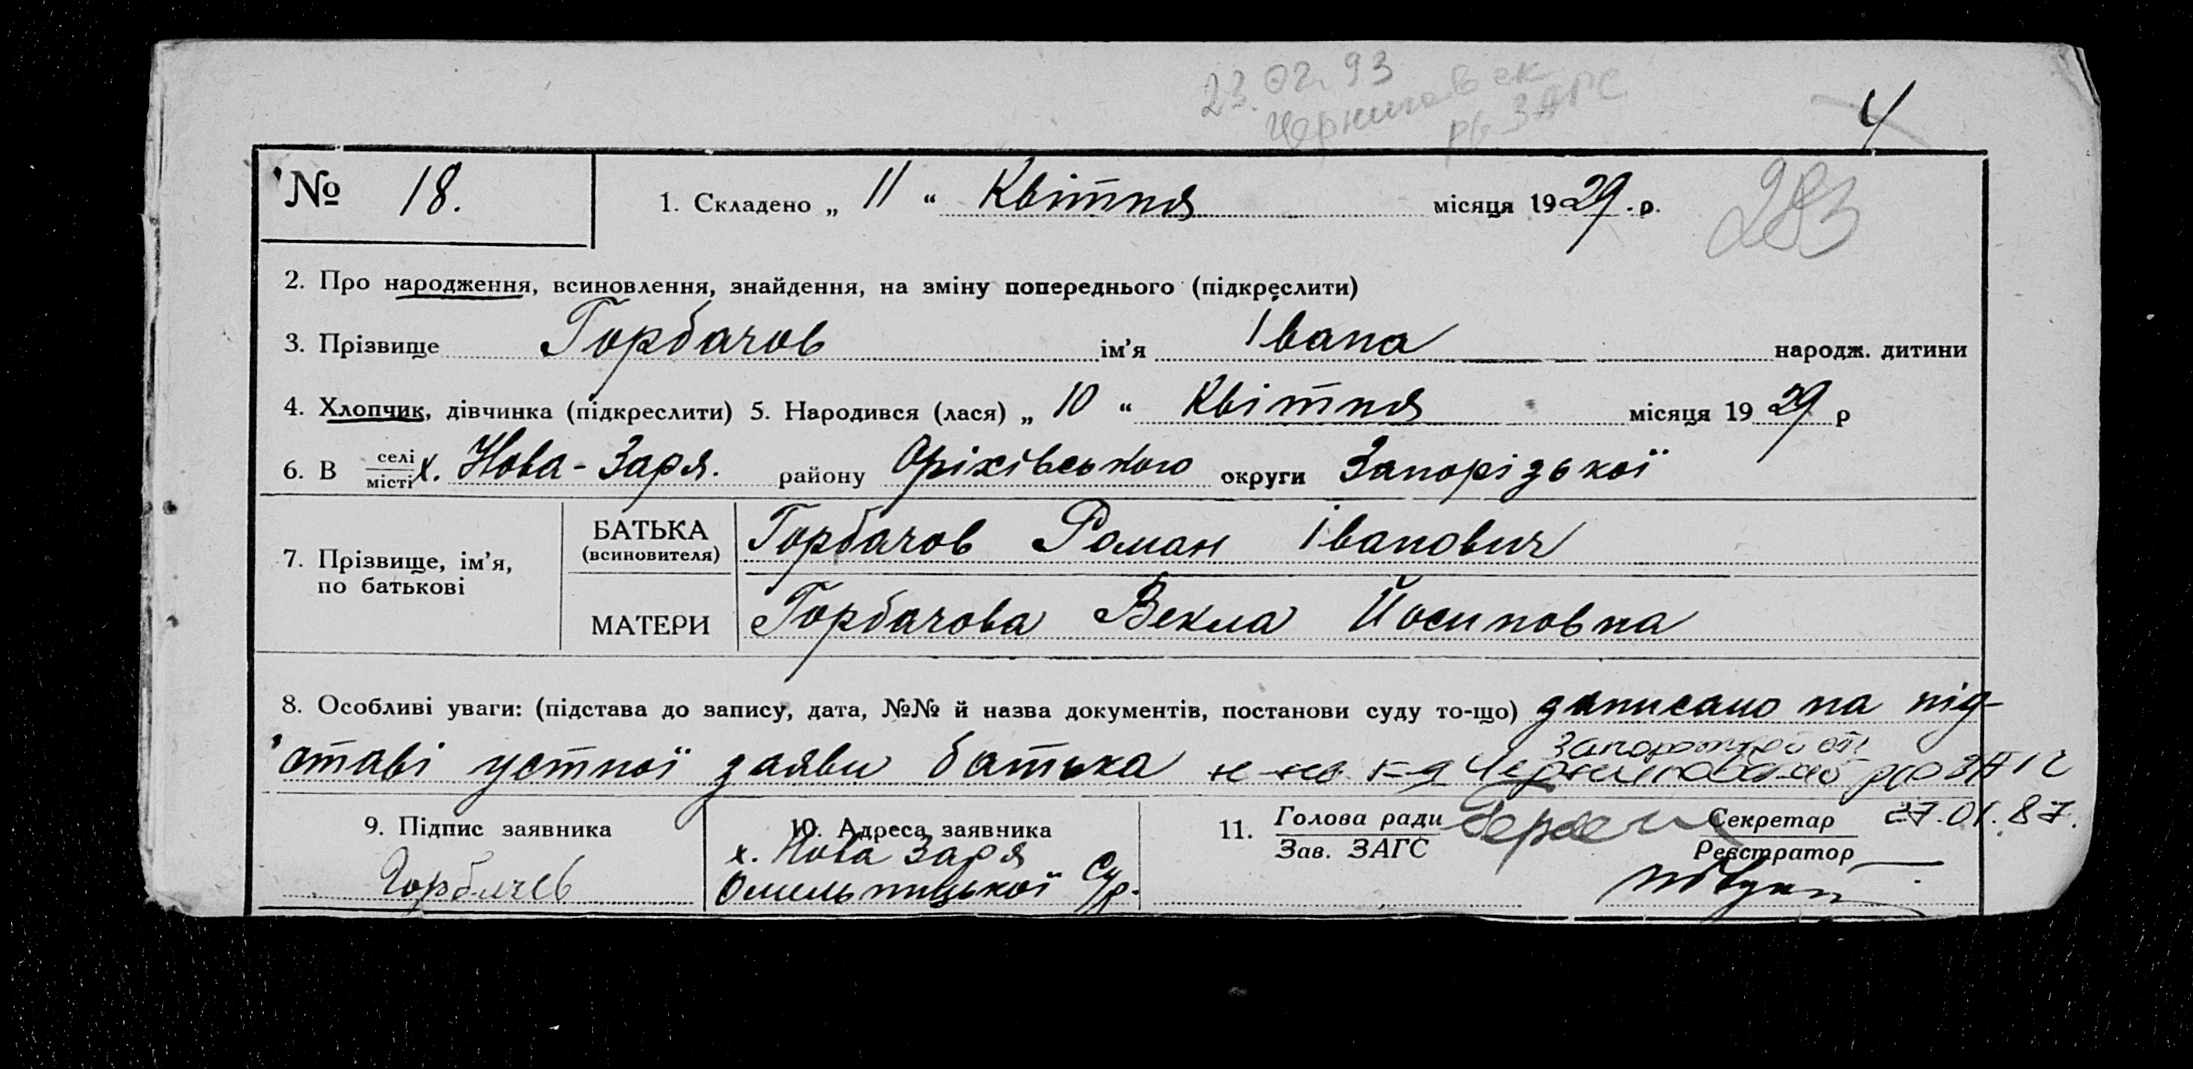 23.02.93
Черниговск
рв ЗАГС
4
№ 18. 1. Складено „ 11 “ Квітня місяця 1929 р.
283
2. Про народження, всиновлення, знайдення, на зміну попереднього (підкреслити)
3. Прізвище Горбачов ім’я Івана народж. дитини
4. Хлопчик, дівчинка (підкреслити) 5. Народився (лася) „ 10 “ Квітня місяця 1929 р
6. В селі/місті х. Нова-Заря. району Оріхівського округи Запорізької
7. Прізвище, ім’я, по батькові
БАТЬКА (всиновителя) Горбачов Роман Іванович
МАТЕРИ Горбачова Векла Йосиповна
8. Особливі уваги: (підстава до запису, дата, №№ й назва документів, постанови суду то-що) записано на під-
ставі устної заяви батька
Запорожской обл
Черниговский ЗАГС
27.01.87.
9. Підпис заявника
Горбачев
10. Адреса заявника
х. Нова Заря
Омельницької С/р.
11. Голова ради
Зав. ЗАГС
Секретар
Реєстратор